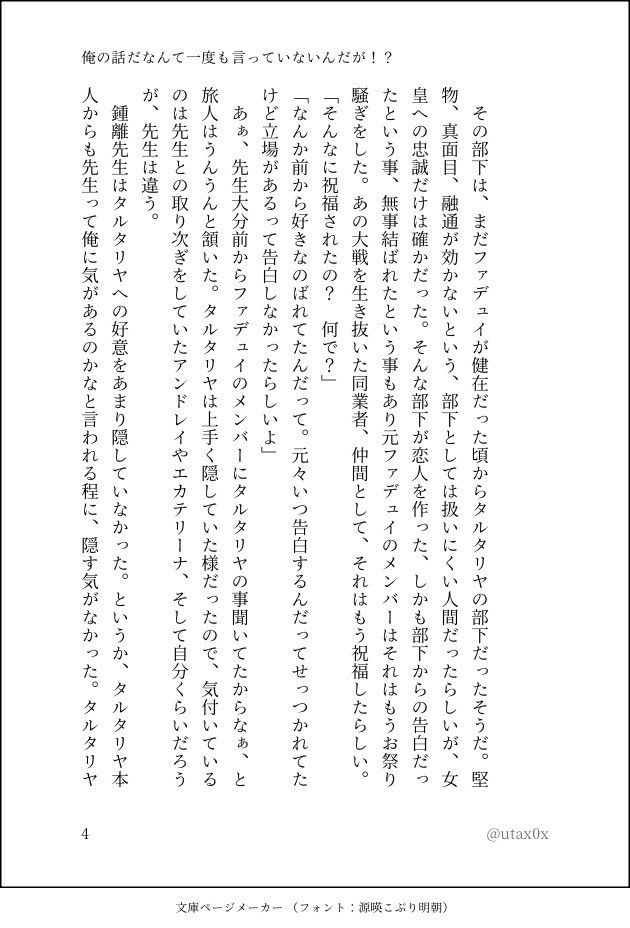 俺の話だなんて一度も言っていないんだが！？
その部下は、まだファデュイが健在だった頃からタルタリヤの部下だったそうだ。堅
物、真面目、融通が効かないという、部下としては扱いにくい人間だったらしいが、女
皇への忠誠だけは確かだった。そんな部下が恋人を作った、しかも部下からの告白だっ
たという事、無事結ばれたという事もあり元ファデュイのメンバーはそれはもうお祭り
騒ぎをした。あの大戦を生き抜いた同業者、仲間として、それはもう祝福したらしい。
「そんなに祝福されたの？　何で？」
「なんか前から好きなのばれてたんだって。元々いつ告白するんだってせっつかれてた
けど立場があるって告白しなかったらしいよ」
あぁ、先生大分前からファデュイのメンバーにタルタリヤの事聞いてたからなぁ、と
旅人はうんうんと頷いた。タルタリヤは上手く隠していた様だったので、気付いている
のは先生との取り次ぎをしていたアンドレイやエカテリーナ、そして自分くらいだろう
が、先生は違う。
鍾離先生はタルタリヤへの好意をあまり隠していなかった。というか、タルタリヤ本
人からも先生って俺に気があるのかなと言われる程に、隠す気がなかった。タルタリヤ
4
@utax0x
文庫ページメーカー（フォント：源暎こぶり明朝）